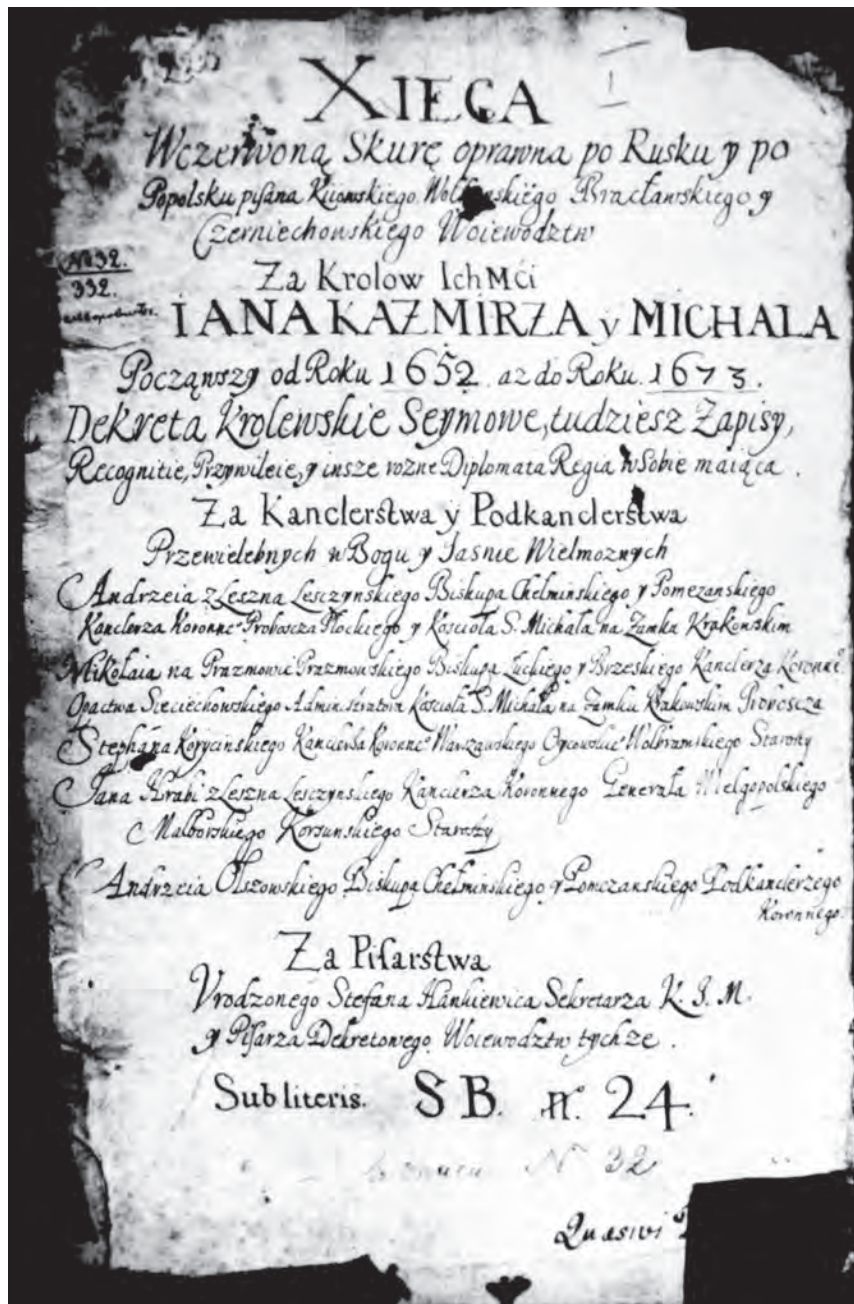 I
XIĘGA
Wczerwoną Skurę oprawna po Rusku y po
Popolsku pisana Kiiowskiego Wołynskiego Bracławskiego y
Czerniechowskiego Woiewodztw
No 32.
332.
Za Krolow IchMći
IANA KAZMIRZA y MICHALA
Począwszy od Roku 1652 az do Roku. 1673.
Dekreta Krolewskie Seymowe, tudziesz Zapisy,
Recognitie, Przywileie, y insze rozne Diplomata Regia wSobie maiąca.
Za Kanclerstwa y Podkanclerstwa
Przewielebnych w Bogu y Jasnie Wielmoznych
Andrzeia z Leszna Lesczynskiego Biskupa Chelminskiego y Pomezanskiego
Kanclerza Koronne° Proboscza Płockiego y Koscioła S. Michała na Zamku Krakowskim
Mikolaia na Prazmowie Prazmowskiego Biskupa Łuckiego y Brzeskiego Kanclerza Koronne°
Opactwa Sieciechowskiego Administratora Koscioła S. Michała na Zamku Krakowskim Proboscza
Stephana Korycinskiego Kanclerza Koronne° Warszawskiego Oycowskie° Wolbramskiego Starosty
Jana Hrabi z Leszna Lesczynskiego Kanclerza Koronnego Generała Wielgopolskiego
Malborskiego Korsunskiego Starosty
Andrzeia Olszowskiego Biskupa Chelminskiego y Pomezanskiego Podkanclerzego
Koronnego.
Za Pisarstwa
Vrodzonego Stefana Hankiewica Sekretarza K. J. M.
y Pisarza Dekretowego Woiewodztw tychze.
Sub literis. S B. n. 24.
N 32
Quasivi